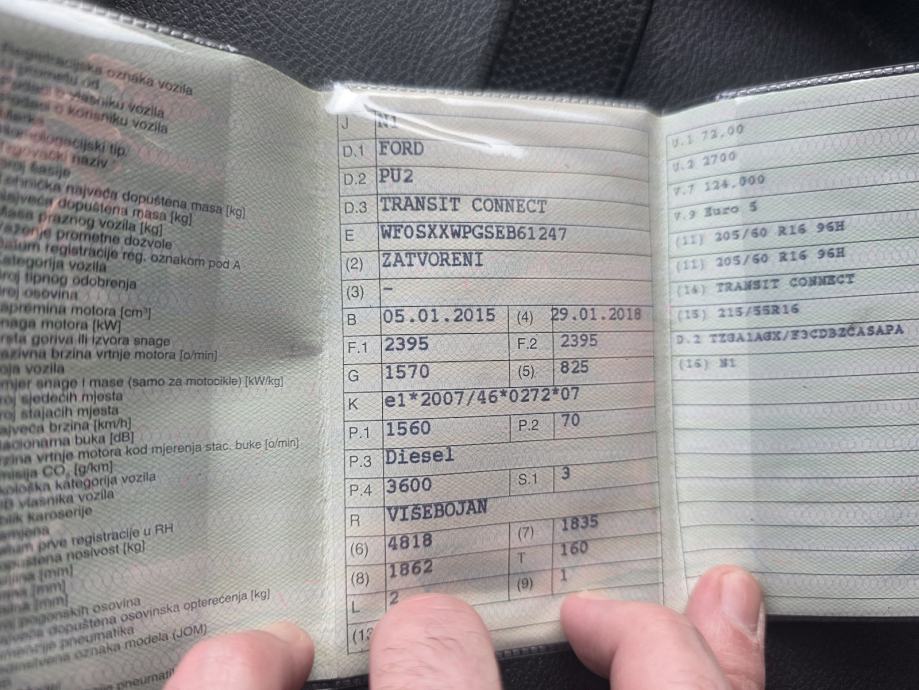 Registracijska oznaka vozila
prometu od
vlasniku vozila
o korisniku vozila
tip
naziv
šasije
najveća dopuštena masa [kg]
dopuštena masa [kg]
Masa praznog vozila [kg]
prometne dozvole
registracije reg. oznakom pod A
kategorija vozila
tipnog odobrenja
osovina
motora [cm³]
snaga motora [kW]
goriva ili izvora snage
brzina vrtnje motora [o/min]
vozila
snage i mase (samo za motocikle) [kW/kg]
sjedećih mjesta
stajaćih mjesta
brzina [km/h]
buka [dB]
vrtnje motora kod mjerenja stac. buke [o/min]
CO₂ [g/km]
kategorija vozila
vlasnika vozila
karoserije
prve registracije u RH
nosivost [kg]
[mm]
[mm]
[mm]
pogonskih osovina
dopuštena osovinska opterećenja [kg]
pneumatika
oznaka modela (JOM)
J N1
D.1 FORD
D.2 PU2
D.3 TRANSIT CONNECT
E WF0SXXWPGSEB61247
(2) ZATVORENI
(3) –
B 05.01.2015 (4) 29.01.2018
F.1 2395 F.2 2395
G 1570 (5) 825
K e1*2007/46*0272*07
P.1 1560 P.2 70
P.3 Diesel
P.4 3600 S.1 3
R VIŠEBOJAN
(6) 4818 (7) 1835
(8) 1862 T 160
L 2 (9) 1
U.1 72,00
U.2 2700
V.7 124.000
V.9 Euro 5
(11) 205/60 R16 96H
(11) 205/60 R16 96H
(14) TRANSIT CONNECT
(15) 215/55R16
(16) N1